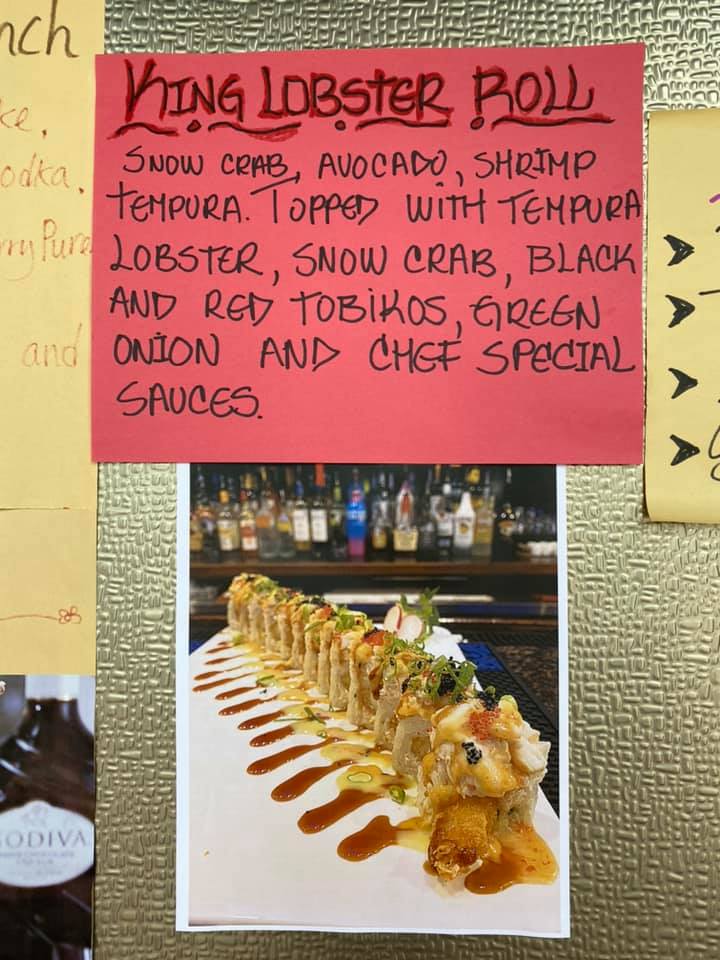 KING LOBSTER ROLL
SNOW CRAB, AVOCADO, SHRIMP
TEMPURA. TOPPED WITH TEMPURA
LOBSTER, SNOW CRAB, BLACK
AND RED TOBIKOS, GREEN
ONION AND CHEF SPECIAL
SAUCES.
nch
ke,
odka,
rry Pure
and
GODIVA